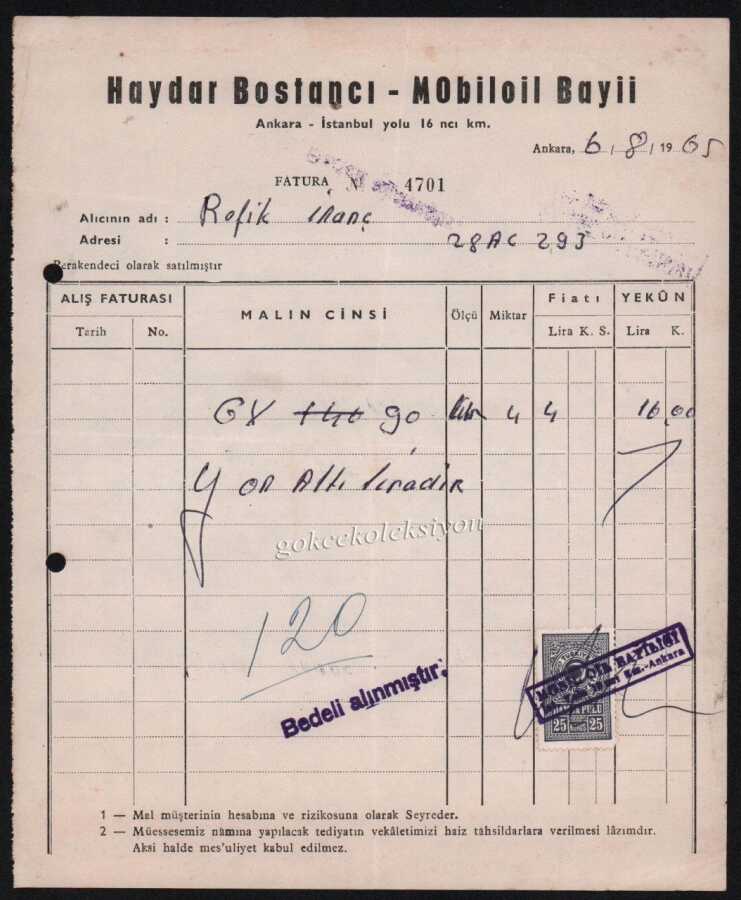 Haydar Bostancı - MObiloil Bayii
Ankara - İstanbul yolu 16 ncı km.
Ankara, 6/8/1965
FATURA № 4701
Alıcının adı : Refik ınanç
Adresi : 28 AC 293
Perakendeci olarak satılmıştır
ALIŞ FATURASI MALIN CİNSİ Ölçü Miktar Fiatı YEKÛN
Tarih No. Lira K. S. Lira K.
GX 140 90 4 4 16,00
Y on Altı liradır
gokcekoleksiyon
120
Bedeli alınmıştır.
MOBİL OİL BAYİLİĞİ
Km.-Ankara
PULU
25 25
1 — Mal müşterinin hesabına ve rizikosuna olarak Seyreder.
2 — Müessesemiz nâmına yapılacak tediyatın vekâletimizi haiz tâhsildarlara verilmesi lâzımdır.
Aksi halde mes'uliyet kabul edilmez.